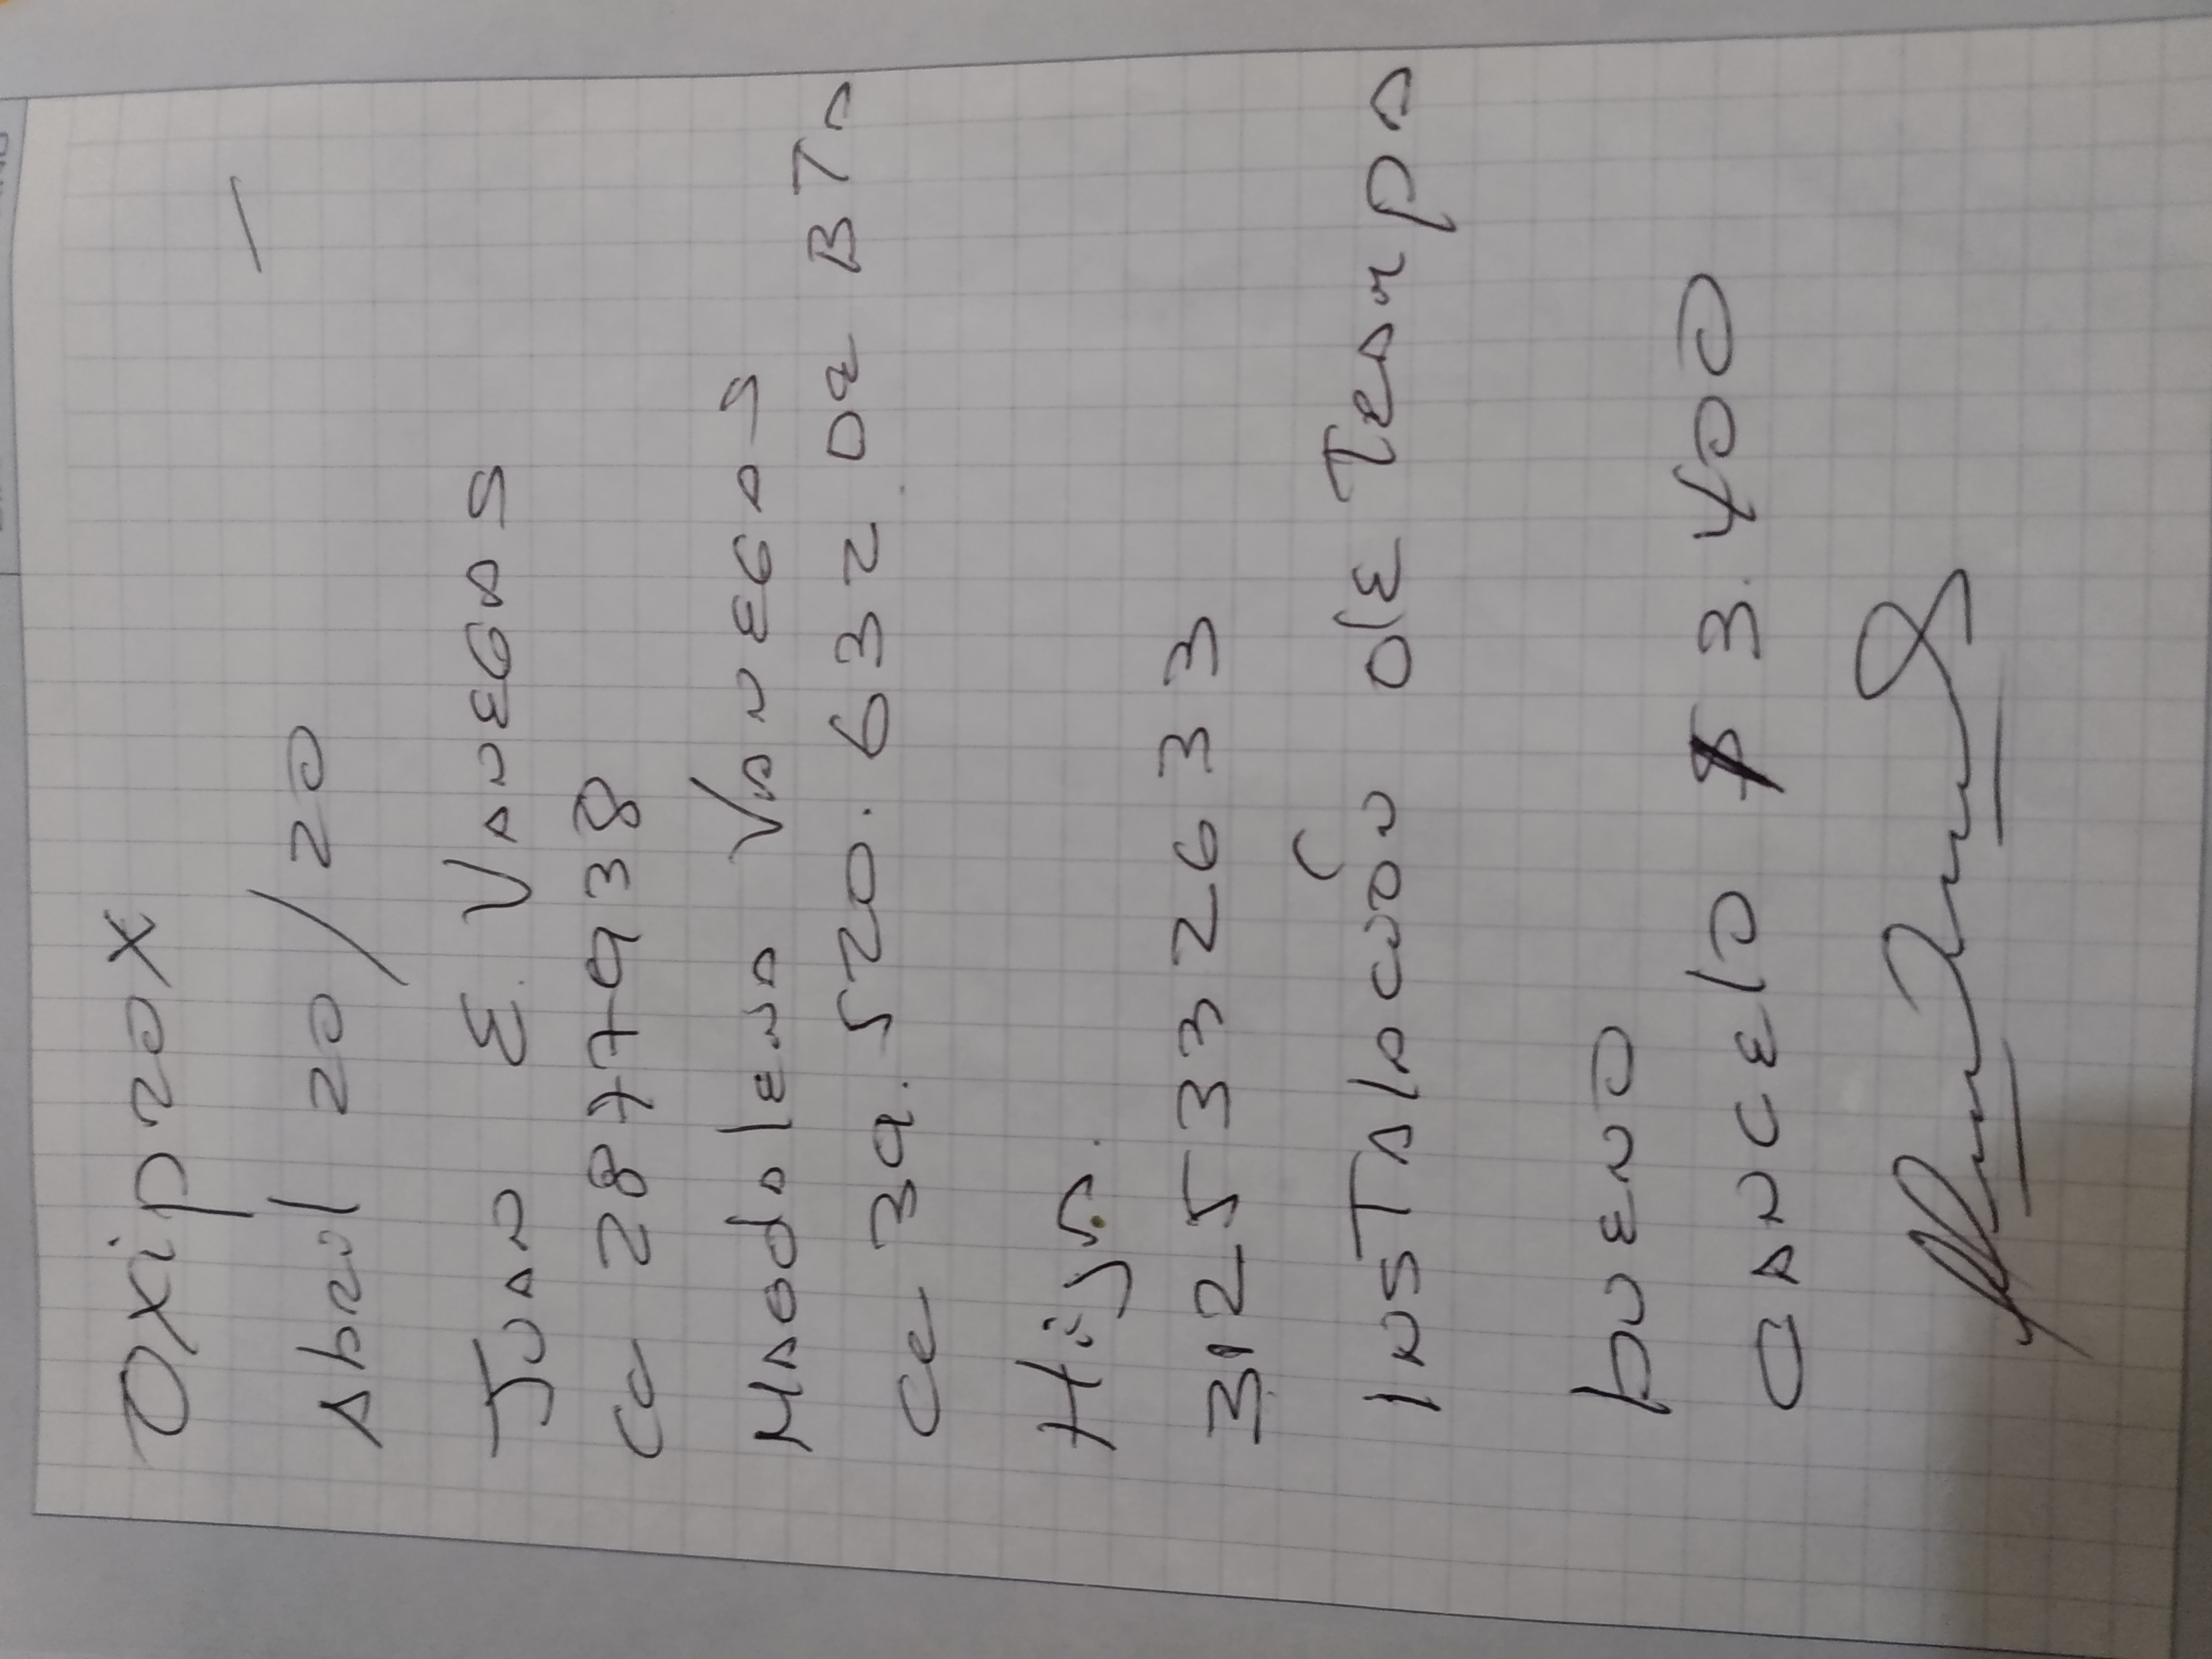 Oxipzox
Abril 20/20
JUAN E. VANEGAS
CC 28779938
Madalena VANEGAS
CC 39.520.632 De BTA
Hija.
3125332633
INSTALACIÓN OlE Terapa
bueno
CANCElO $ 3.400